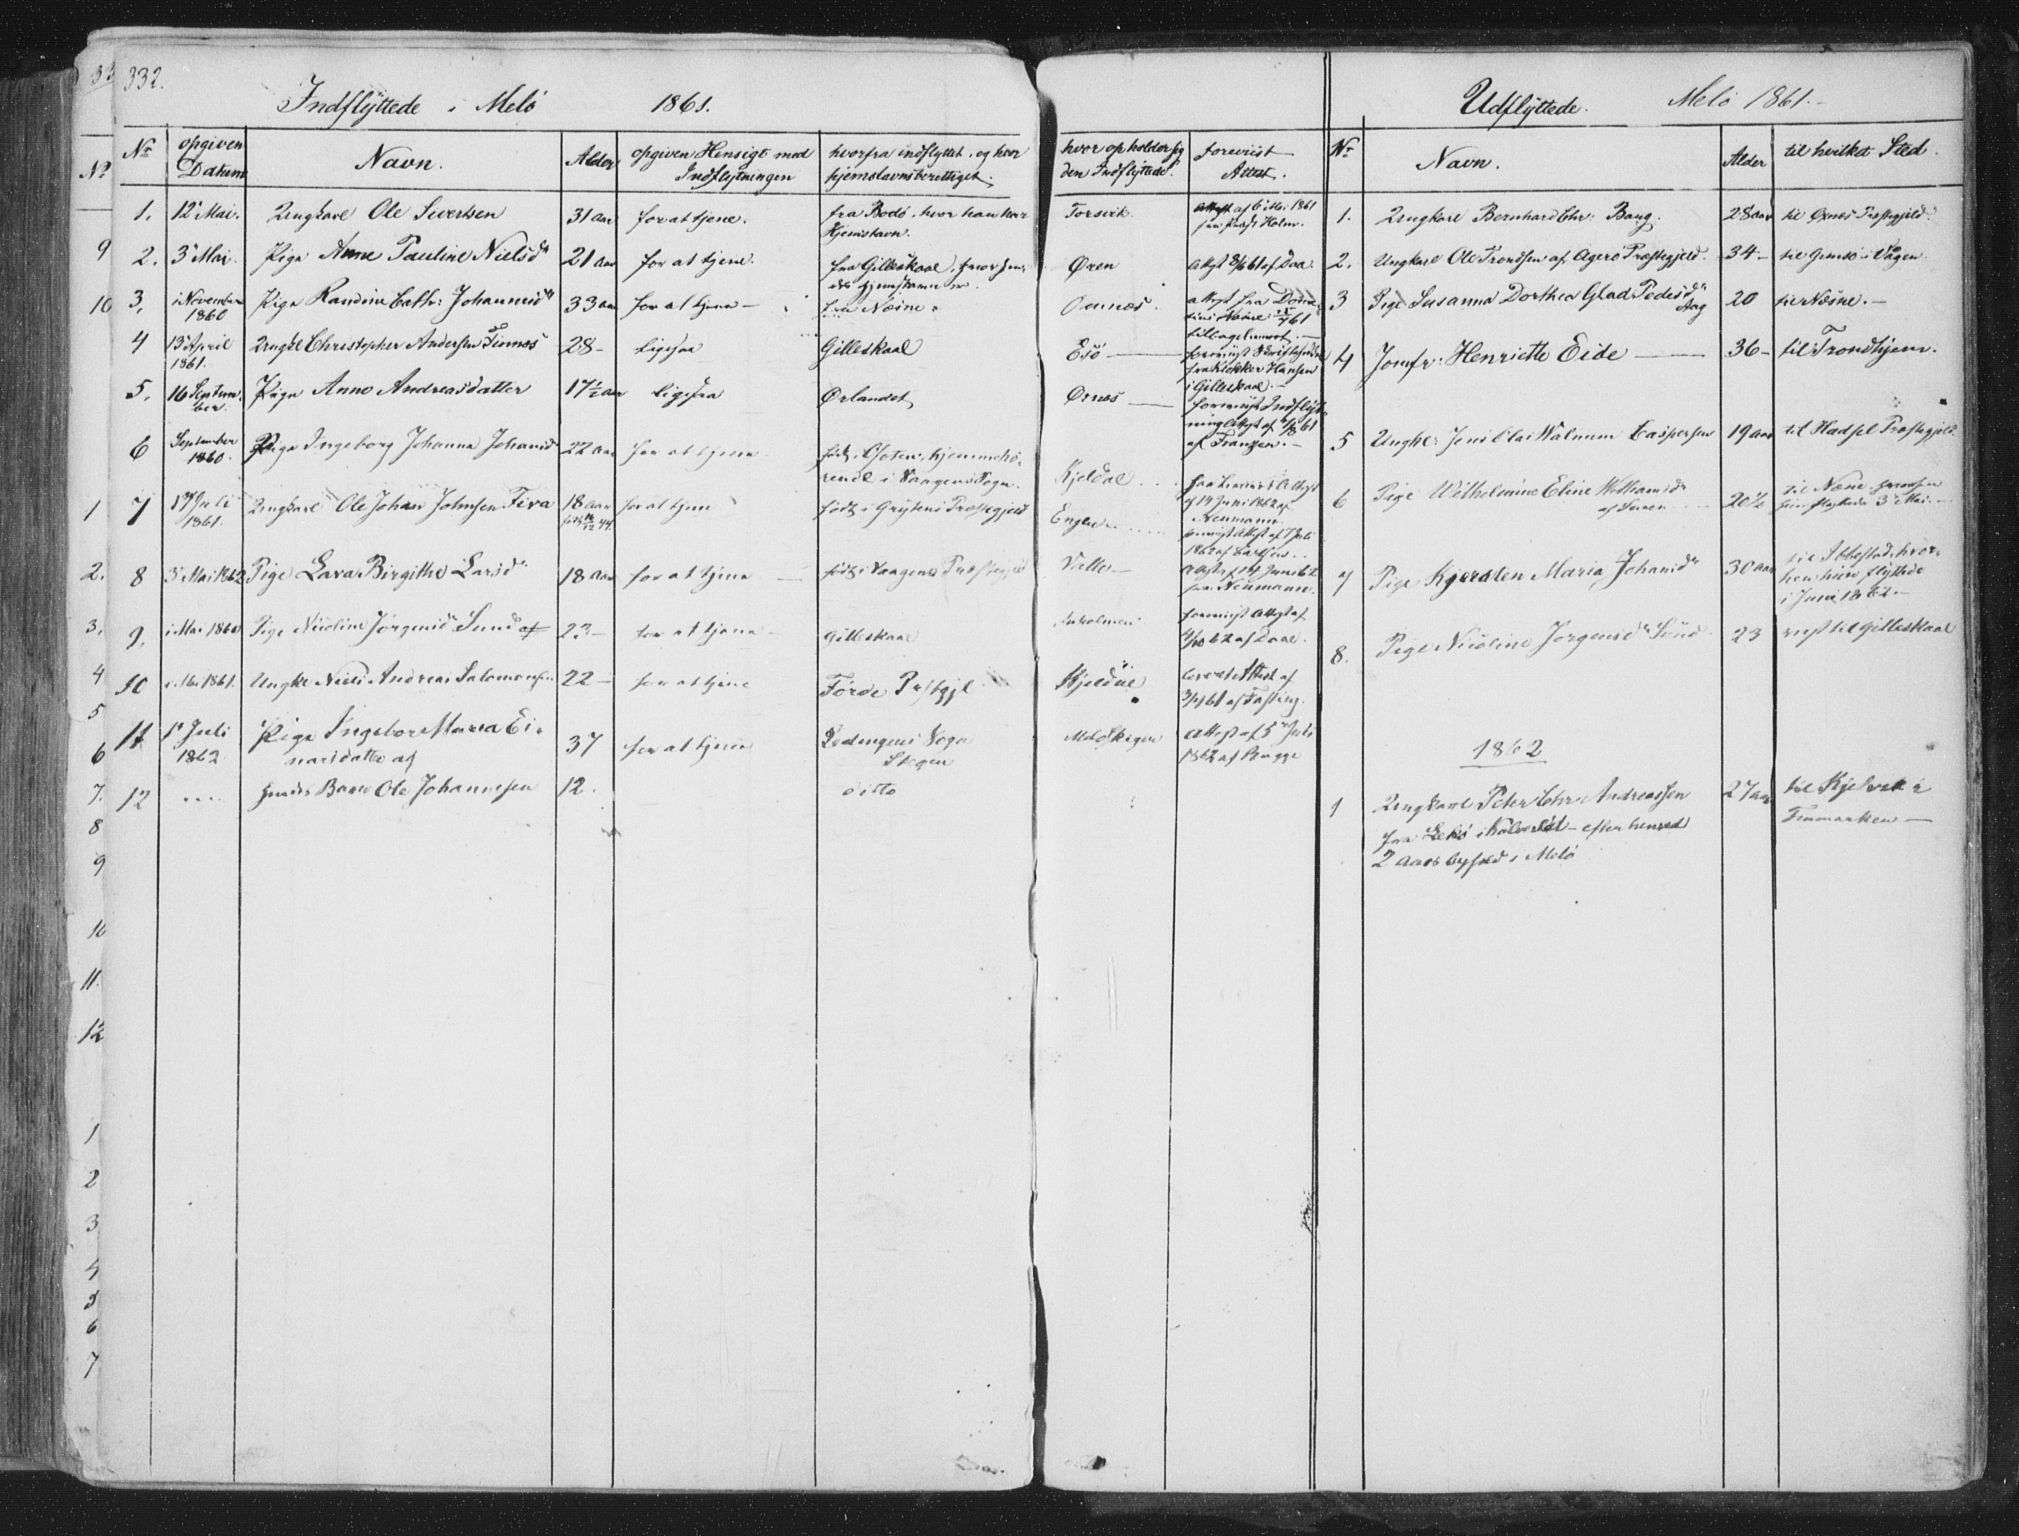 332.
Indflyttede i Melö 1861.
No opgiven Datum Navn. Alder opgiven Hensigt med Indflytningen hvorfra indflyttet, og hvor hjemstavnsberettiget.
hvor opholder sig den Indflyttede. foreviist Attest.
1. 12 Mai. Ungkarl Ole Sivertsen 31 aar for at tjene. fra Bodö, hvor han har Hjemstavn. Forsvik Attest af 6 Mai 1861 fra Holm.
2. 3 Mai. Pige Anne Pauline Nielsd 21 aar for at tjene. fra Gilleskaal, hvor Øren Attest af Daa
3. i November 1860 Pige Randine Cath: Johannesd 33 aar for at tjene fra Næsne Oarnæs. attest fra
4 13 April 1861. Ungkl Christopher Andersen Finnes 28 - ligesaa Gilleskaal Esö foreviist fra Klokker Hansen i Gilleskaal.
5. 16 September. Pige Anne Andreasdatter 17½ aar ligesaa Ørlandet Ørnæs foreviist Indflytningsattest af af Franzen.
6 September 1860. Pige Ingeborg Johanna Johansd 22 aar for at tjene født i hjemmehörende i Vaagens Sogn. Kjeldal
7 17 Juli 1861. Ungkarl Ole Johan Johnsen Fiva 18 aar for at tjene født i Grytens Præstegjeld Engen
8 3 Mai 1862 Pige Lava Birgithe Larsd 18 aar for at tjene født i Vaagens Præstegjeld Valle Attest af Juni fra Neumann.
9. i Mai 1860 Pige Nicoline Jörgensd Sund 23 - for at tjene Gilleskaal foreviist Attest af af Daae.
10 1861. Ungkl Niels Andreas Salomonsen 22 - for at tjene Förde Kjeldal Attest af af Fasting.
11 1 Juli 1862 Pige Ingebor Maria Einarsdatter af 37 for at tjene Lodingens Sogn Stegen Attest af 5 Juli 1862 af Bugge
12 .... hendes Barn Ole Johannesen 12. ditto
Udflyttede. Melö 1861.-
No Navn. Alder til hvilket Sted.
1. Ungkarl Bernhard Chr: Bang. 28 aar til Ørnes Præstegjeld.
2. Ungkarl Ole Trondsen af Agerö Præstegjeld. 34 - til Gimsö i Vågen
3 Pige Susanna Dorthea Glad Pedersd Aag 20 til Næsne.
4 Jomfr: Henriette Eide 36 - til Trondhjem.
5 Ungkl: Jens Olai Walnum Caspersen 19 aar til Hadsel Præstegjeld
6 Pige Wilhelmine Eline Wilhamsd af 20½ til Næsne flyttede 3 Mai.
7 Pige Kjersten Maria Johansd 30 aar til Ibbestad, hvorhen hun flyttede i Juni 1862.
8. Pige Nicoline Jörgensd Sund 23 reist til Gilleskaal
1862
1 Ungkarl Peter Chr. Andreassen fra Lekö i Kolvereid - efter henved 2 Aars Ophold i Melö 27 aar til Kjelvik i Finmarken
9
10
1
2.
3.
4
5
6
7.
8
9
10
11.
12
1
2
3
4
5
6
7